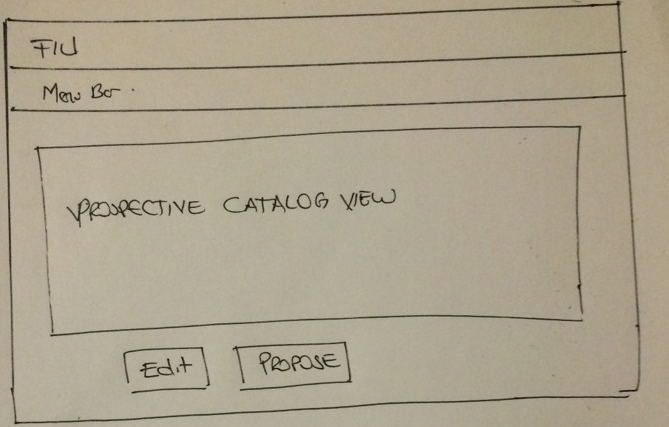 FIU
Menu Bar.
PROSPECTIVE CATALOG VIEW
Edit
PROPOSE